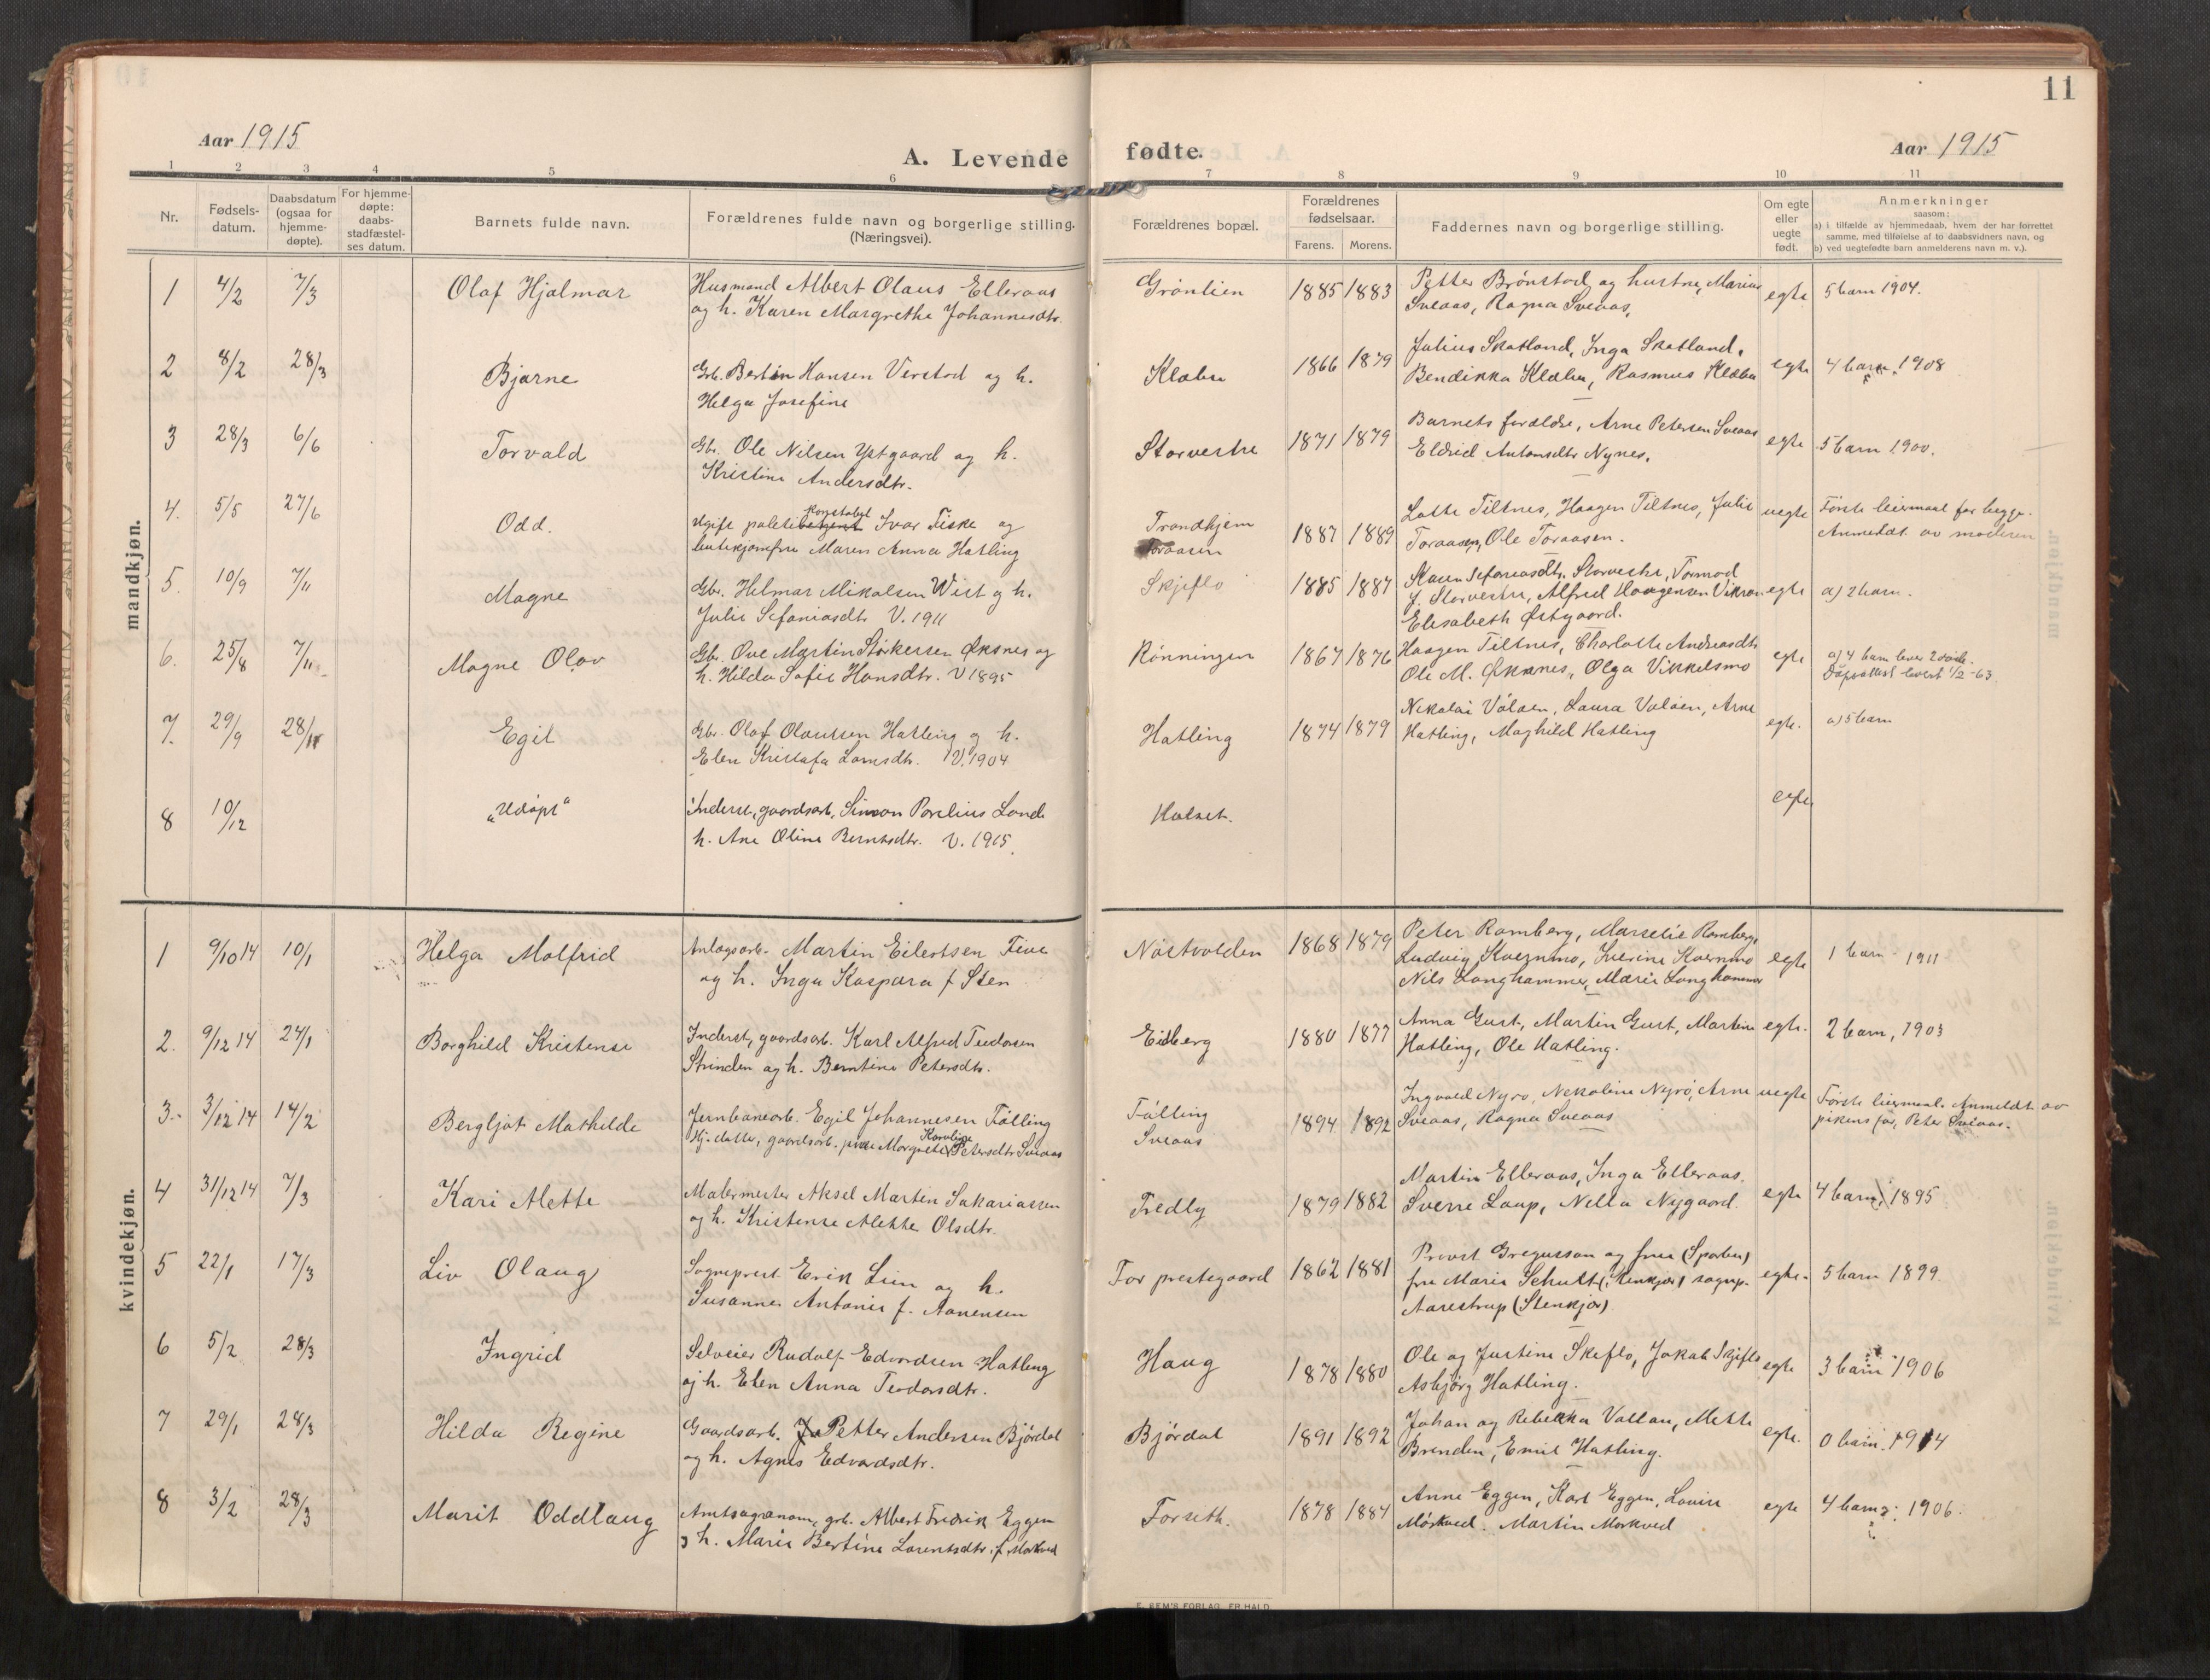 11
Aar 1915
A. Levende fødte.
Aar 1915
1 2 3 4 5 6 7 8 9 10 11
Nr.
Fødsels-
datum.
Daabsdatum
(ogsaa for
hjemme-
døpte).
For hjemme-
døpte:
daabs-
stadfæstel-
ses datum.
Barnets fulde navn.
Forældrenes fulde navn og borgerlige stilling.
(Næringsvei).
Forældrenes bopæl.
Forældrenes
fødselsaar.
Farens. Morens.
Faddernes navn og borgerlige stilling.
Om egte
eller
uegte
født.
Anmerkninger
saasom:
a) i tilfælde av hjemmedaab, hvem der har forrettet
samme, med tilføielse af to daabsvidners navn, og
b) ved uegtefødte barn anmelderens navn m. v.).
mandkjøn.
1 4/2 7/3 Olaf Hjalmar
Husmand Albert Olaus Elleraas
og h. Karen Margrethe Johannesdtr.
Grønlien 1885 1883
Petter Brønstad og hustru, Marius
Sveaas, Ragna Sveaas,
egte 5 barn 1904.
2 8/2 28/3 Bjarne
Grb. Bertin Hansen Verstad og h.
Helga Josefine
Klæbu 1866 1879
Julius Skatland, Inga Skatland,
Bendikka Klæbu, Rasmus Klæbu
egte 4 barn. 1908
3 28/3 6/6 Torvald
Gbr. Ole Nilsen Ystgaard og h.
Kristine Andersdtr.
Storvestre 1871 1879
Barnets forældre, Arne Petersen Sveaas
Eldrid Antonsdtr Nynes.
egte 5 barn 1900.
4. 5/5 27/6 Odd.
konstabel
Ugift politibetjent Ivar Fiske og
butikjomfru Maren Anna Hatling
Trondhjem
Toraasen
1887 1889
Lotte Tiltnes, Haagen Tiltnes, Julie
Toraasen, Ole Toraasen.
uegte
Første leiermaal for begge.
Anmeldt av moderen
5. 10/9 7/11 Magne
Gbr. Helmar Mikalsen Wist og h.
Julie Sefaniasdtr V. 1911
Skjeflo 1885 1887
Sefaniasdtr. Storvestre, Tormod
J. Storvestre, Alfred Haagensen
Elisabeth Østgaard.
egte a) 2 barn.
6. 25/8 7/11 Magne Olav
Gbr. Ove Martin Størkersen Øksnes og
h. Hilda Sofie Hansdtr. V 1895
Rønningen 1867 1876
Haagen Tiltnes, Charlotte Andreasdtr
Ole M. Øksnes, Olga Vikkelsmo
egte a) 4 barn lever 2 døde.
Dåpsattest levert 1/2-63
7. 29/9 28/11 Egil
Gbr. Olaf Olaussen Hatling og h.
Elen Kristofa Larsdtr. V. 1904
Hatling 1874 1879
Nikolai Valøen, Laura Valøen, Arne
Hatling, Maghild Hatling
egte. a) 5 barn
8 10/12 "Udøpt"
Inderst, gaardsarb. Simon Porelius Lande
h. Ane Oline Berntsdtr. V. 1915.
Halset.
egte
kvindekjøn.
1 9/10 14 10/1 Helga Malfrid
Anlægsarb. Martin Eilertsen Five
og h. Inga Kaspara f Sten
Nøstvolden 1868 1879
Peter Ramberg, Marselie Ramberg,
Ludvig Kvernmo, Kvernmo
Nils Langhammer, Marie Langhammer
egte 1 barn 1911
2. 9/12 14 24/1 Borghild Kristense
Inderst, gaardsarb. Karl Alfred Teodorsen
Strinden og h. Berntine Petersdtr.
Eidberg 1880 1877
Anna Gust, Martin Gust, Martin
Hatling, Ole Hatling.
egte. 2 barn, 1903
3. 3/12 14 14/2 Bergljot Mathilde
Jernbanearb. Egil Johannesen Følling
Karoline
Hj. datter, gaardsarb. pike Margrete Petersdtr Sveaas
Følling
Sveaas
1894 1892
Ingvald Nyrø, Nekoline Nyrø, Arne
Sveaas, Ragna Sveaas
uegte
Første leiermaal. Anmeldt av
pikens far, Peter Sveaas.
4 31/12 14 7/3 Kari Alette
Malermester Aksel Martin Sakariassen
og h. Kristense Alette Olsdtr.
Fredly 1879 1882
Martin Elleraas, Inga Elleraas.
Sverre Laup, Nella Nygaard.
egte 4 barn, 1895
5 22/1 17/3 Liv Olaug
Sogneprest Erik Lien og h.
Susanne Antonie f. Aanensen
For prestegaard 1862 1881
Provst Gregusson og frue (Sparbu)
fru Marie Schult (Stenkjær) sognep.
Aarestrup (Stenkjær)
egte. 5 barn 1899
6 5/2 28/3 Ingrid
Selveier Rudolf Edvardsen Hatling
og h. Elen Anna Teodorsdtr.
Haug 1878 1880
Ole og Justine Skeflo, Jakob Skjeflo
Asbjørg Hatling.
egte 3 barn 1906
7 29/1 28/3 Hilda Regine
Gaardsarb. Petter Andersen Bjørdal
og h. Agnes Edvardsdtr.
Bjørdal 1891 1892
Johan og Rebekka Vollan, Mette
Brenden, Emil Hatling.
egte. 0 barn. 1914
8 3/2 28/3 Marit Oddlaug
Amtsagronom, grb. Albert Fredrik Eggen
og h. Marie Bertine Lorentsdtr. f. Mørkved
Forseth. 1878 1884
Anne Eggen, Karl Eggen, Lovise
Mørkved. Martin Mørkved
egte 4 barn, 1906.
E. SEM'S FORLAG, FR.HALD